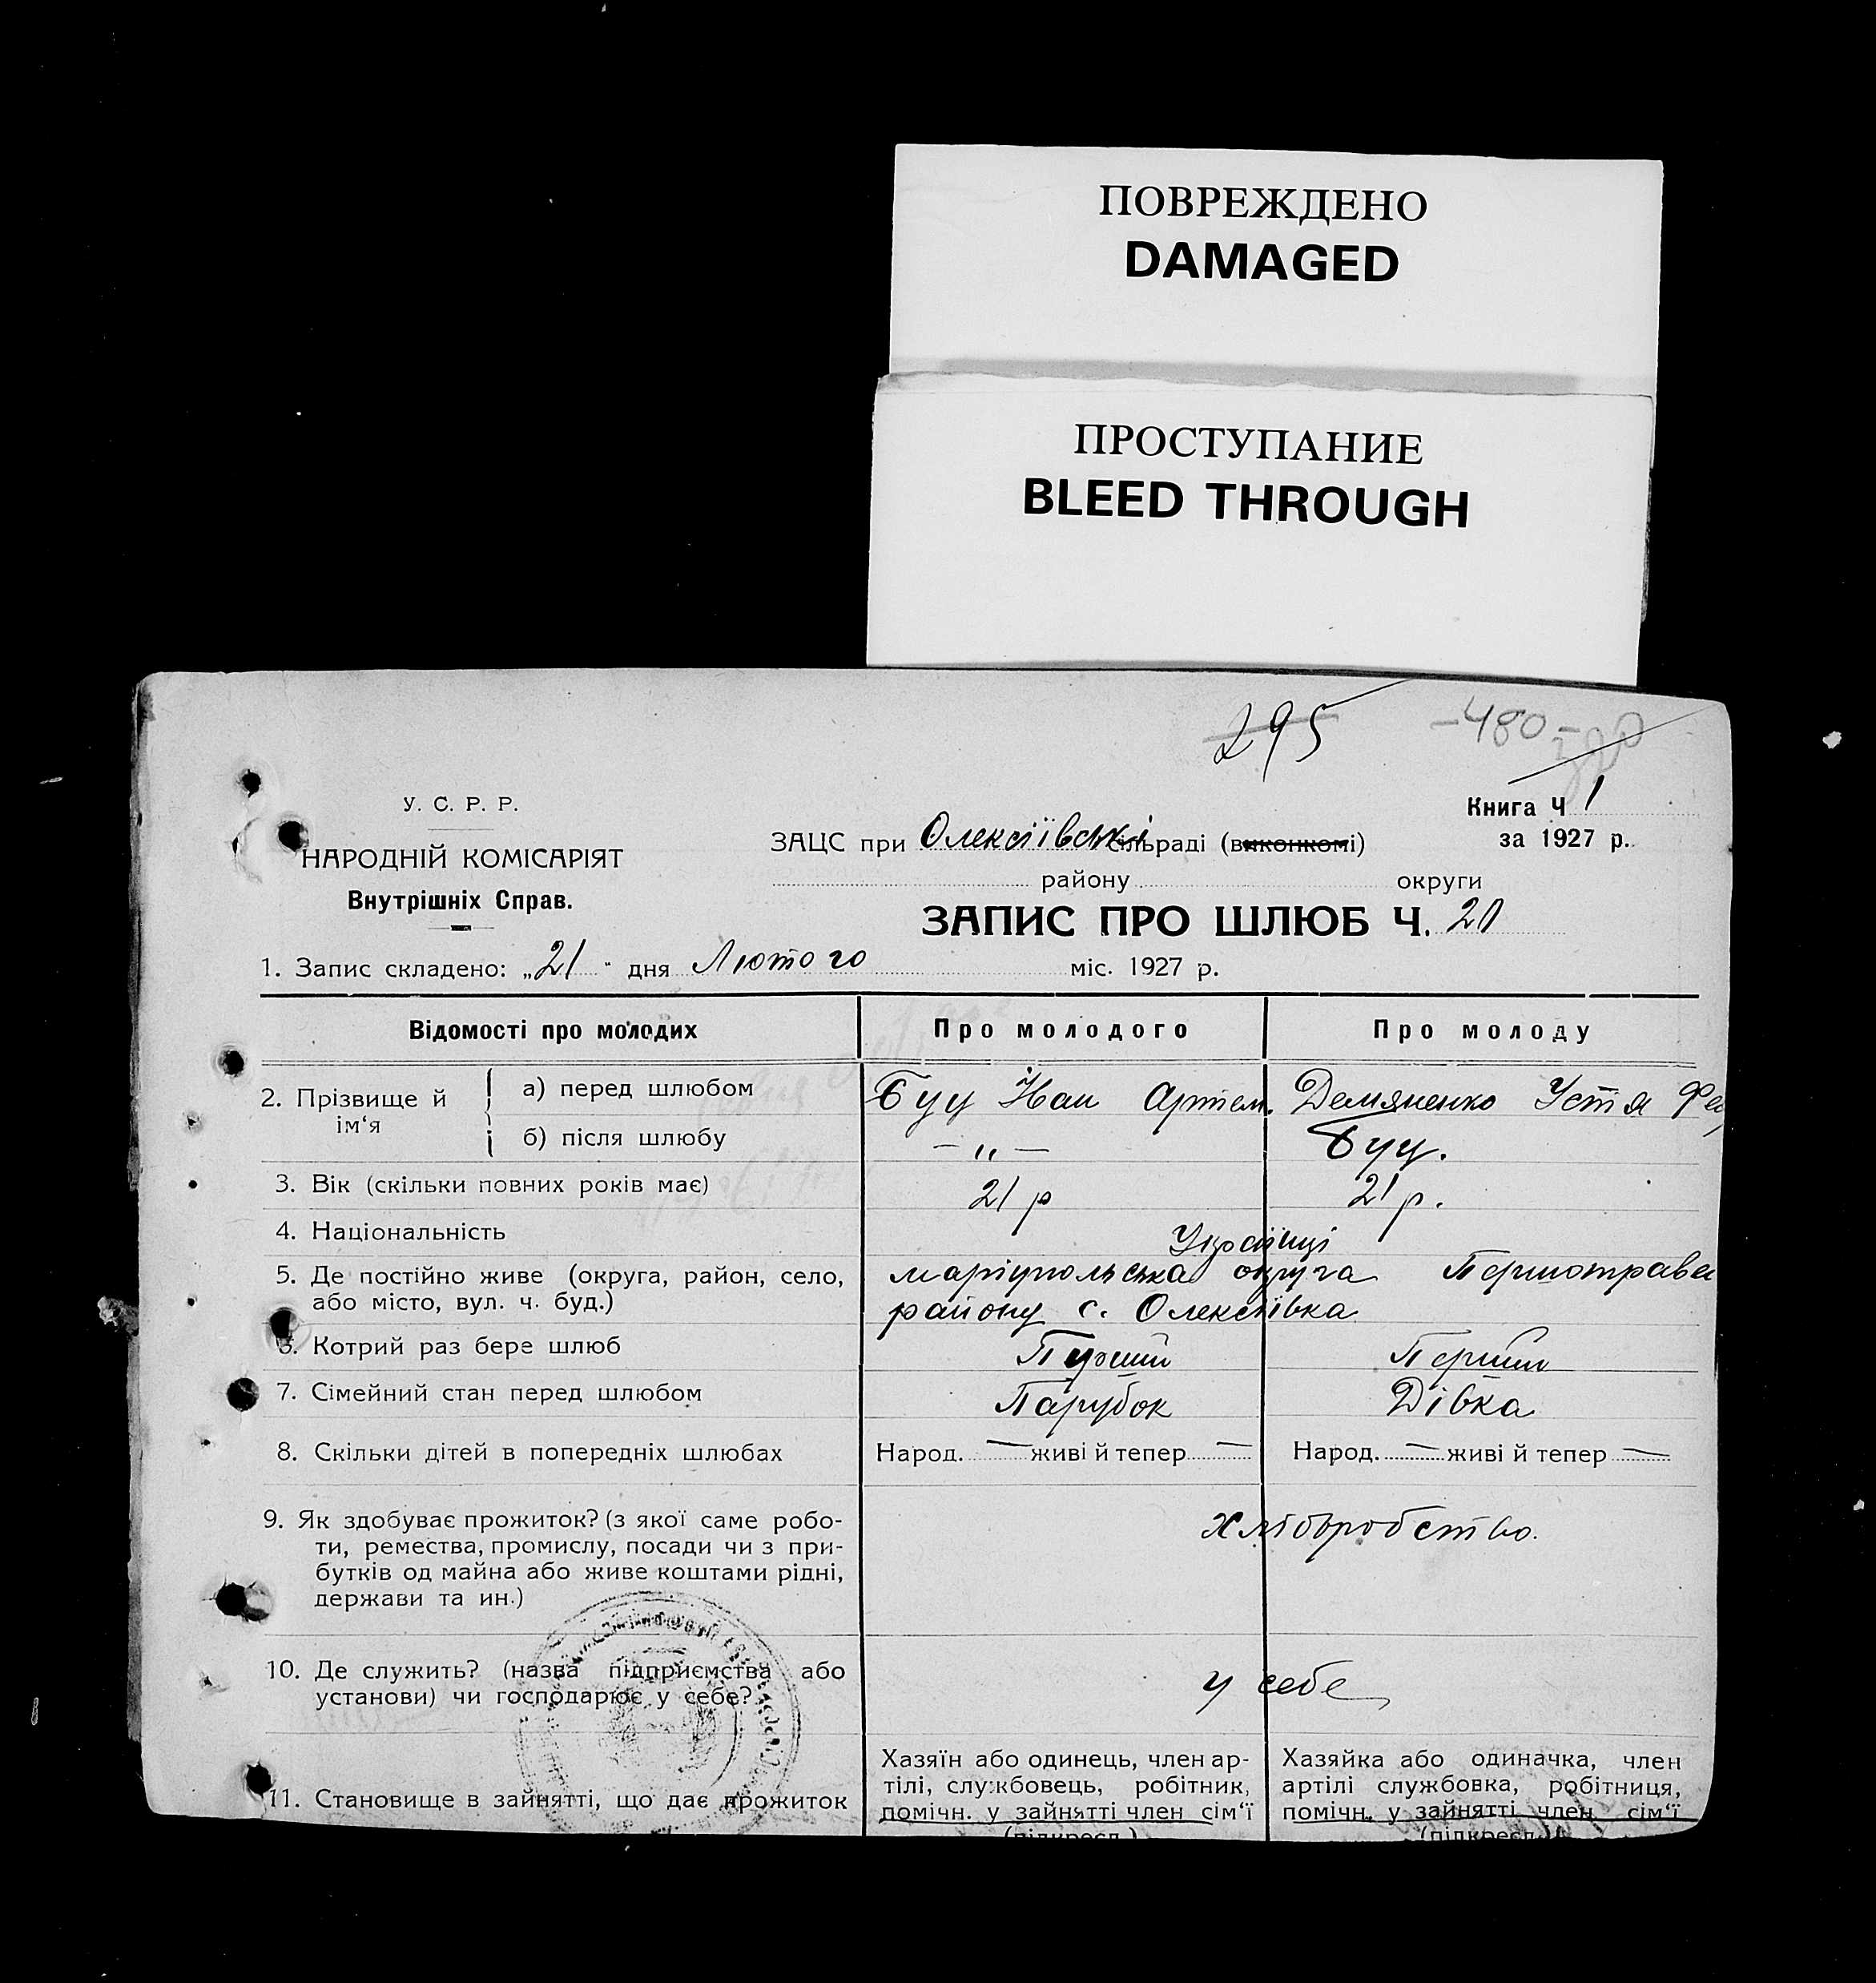 ПОВРЕЖДЕНО
DAMAGED
ПРОСТУПАНИЕ
BLEED THROUGH
295
-480-
У. С. Р. Р.
НАРОДНІЙ КОМІСАРІЯТ
Внутрішніх Справ.
Книга Ч 1
за 1927 р.
ЗАЦС при Олексіївській сільраді (виконкомі)
району округи
ЗАПИС ПРО ШЛЮБ Ч. 20
1. Запис складено: „21" дня Лютого міс. 1927 р.
Відомості про молодих Про молодого Про молоду
2. Прізвище й ім‘я
а) перед шлюбом Буц Артем. Демяненко Устя
б) після шлюбу — „ — Буц.
3. Вік (скільки повних років має) 21 р 21 р.
4. Національність Українці
5. Де постійно живе (округа, район, село, маріупольська округа Першотравен
або місто, вул. ч. буд.) району с. Олексіївка
6. Котрий раз бере шлюб Перший Перший
7. Сімейний стан перед шлюбом Парубок Дівка
8. Скільки дітей в попередніх шлюбах Народ. — живі й тепер — Народ. — живі й тепер —
9. Як здобуває прожиток? (з якої саме робо- хліборобство.
ти, ремества, промислу, посади чи з при-
бутків од майна або живе коштами рідні,
держави та ин.)
10. Де служить? (назва підприємства або у себе
установи) чи господарює у себе?
11. Становище в зайнятті, що дає прожиток
Хазяїн або одинець, член ар-
тілі, службовець, робітник,
помічн. у зайнятті член сім‘ї
(підкресл.)
Хазяйка або одиначка, член
артілі службовка, робітниця,
помічн. у зайнятті член сім‘ї
(підкресл.)